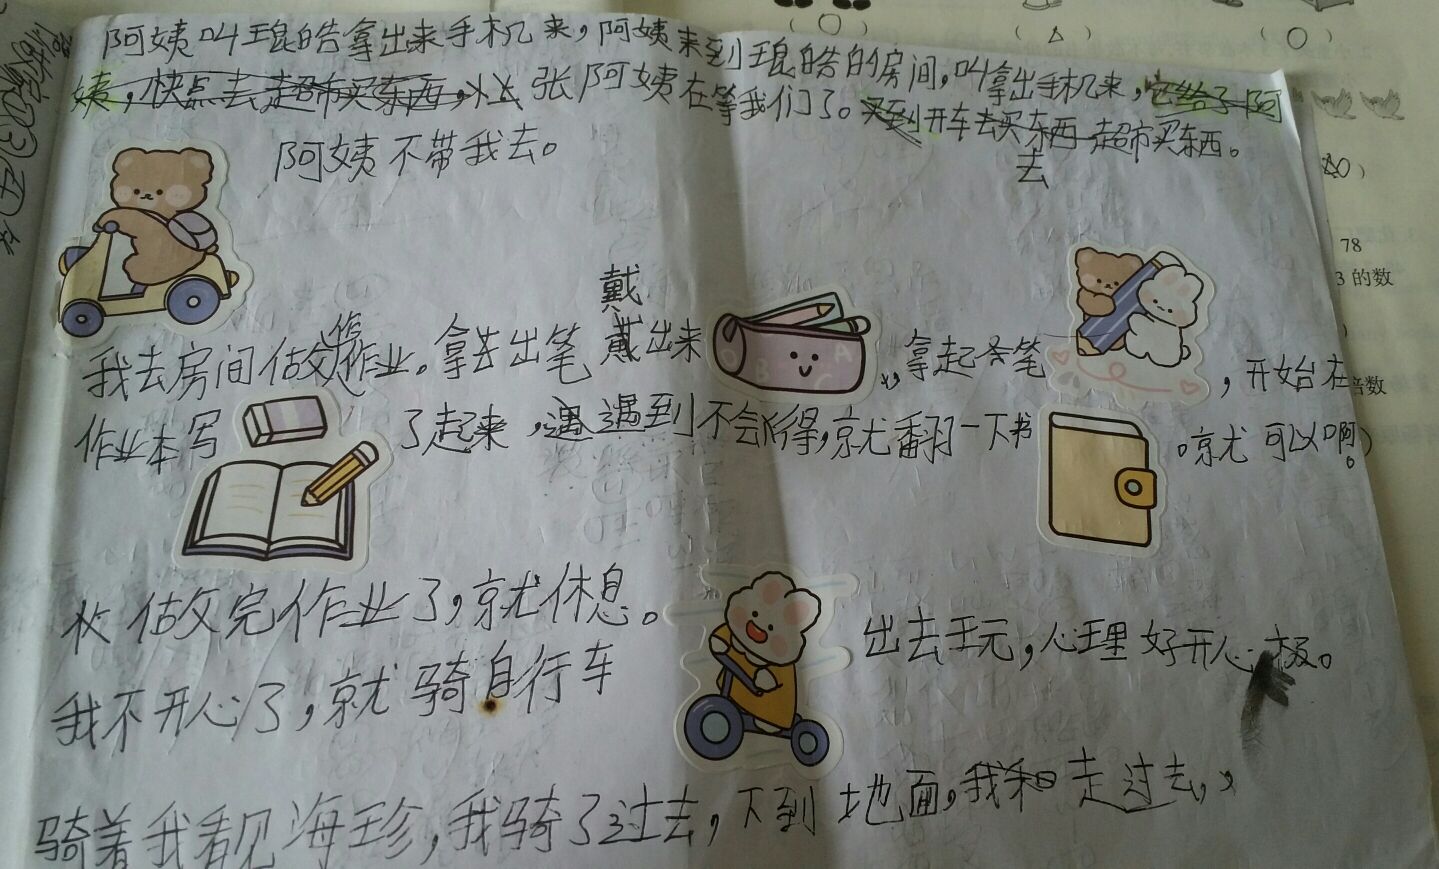 阿姨叫王琨皓拿出来手机来，阿姨来到王琨皓的房间，叫拿出手机来，它给了阿
姨，快点去超市买东西，张阿姨在等我们了。买到开车去买东西超市买东西。
去
阿姨不带我去。
戴
我去房间做作业。拿去出笔戴出来，拿起笔，开始在
作业本写了起来，遇遇到不会的得，就翻一下书。就可以啊。
做完作业了，就休息。
我不开心了，就骑自行车出去玩，心理好开心极。
骑着我看见海珍，我骑了过去，下到地面，我和走过去，
78
3 的数
倍数